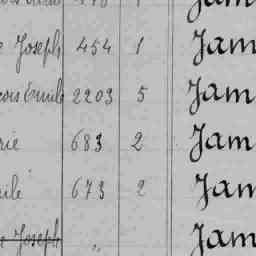 Jam
Joseph 454 1 Jam
Emile 2203 5 Jam
rie 683 2 Jam
ile 673 2 Jam
Joseph " Jam